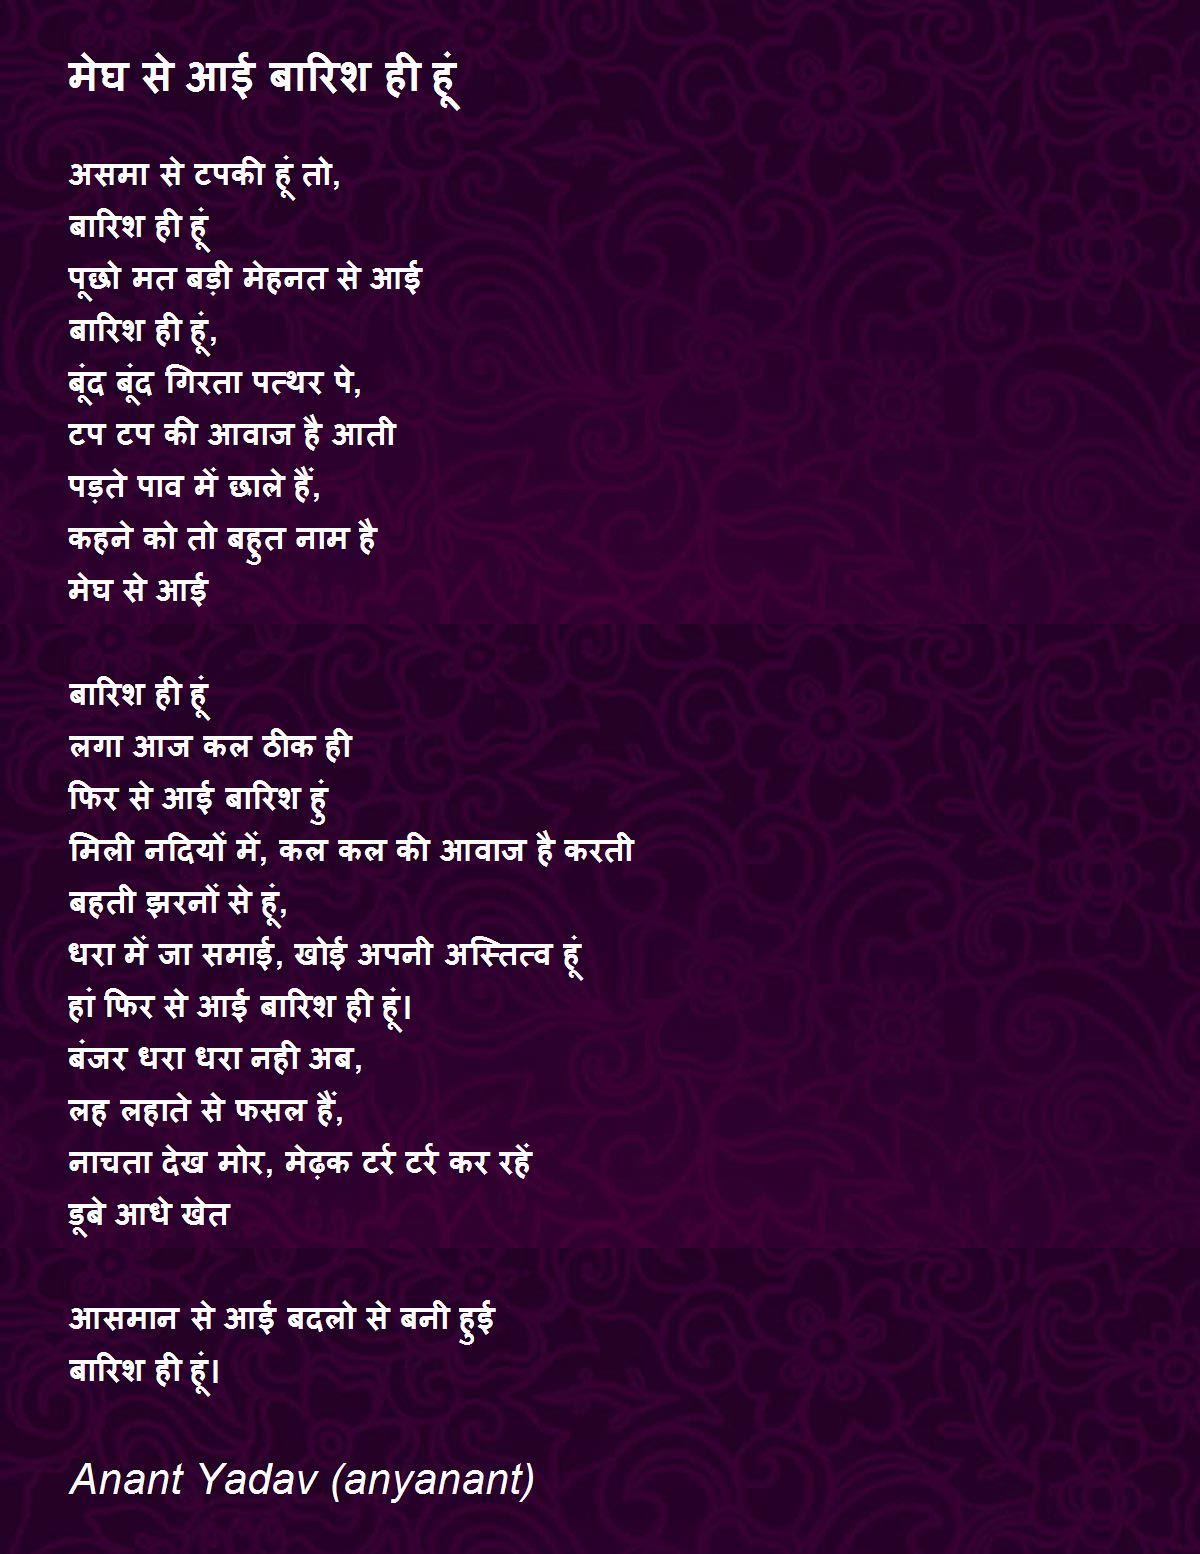 मेघ से आई बारिश ही हूं
असमा से टपकी हूं तो,
बारिश ही हूं
पूछो मत बड़ी मेहनत से आई
बारिश ही हूं,
बूंद बूंद गिरता पत्थर पे,
टप टप की आवाज है आती
पड़ते पाव में छाले हैं,
कहने को तो बहुत नाम है
मेघ से आई
बारिश ही हूं
लगा आज कल ठीक ही
फिर से आई बारिश हुं
मिली नदियों में, कल कल की आवाज है करती
बहती झरनों से हूं,
धरा में जा समाई, खोई अपनी अस्तित्व हूं
हां फिर से आई बारिश ही हूं।
बंजर धरा धरा नही अब,
लह लहाते से फसल हैं,
नाचता देख मोर, मेढ़क टर्र टर्र कर रहें
डूबे आधे खेत
आसमान से आई बदलो से बनी हुई
बारिश ही हूं।
Anant Yadav (anyanant)